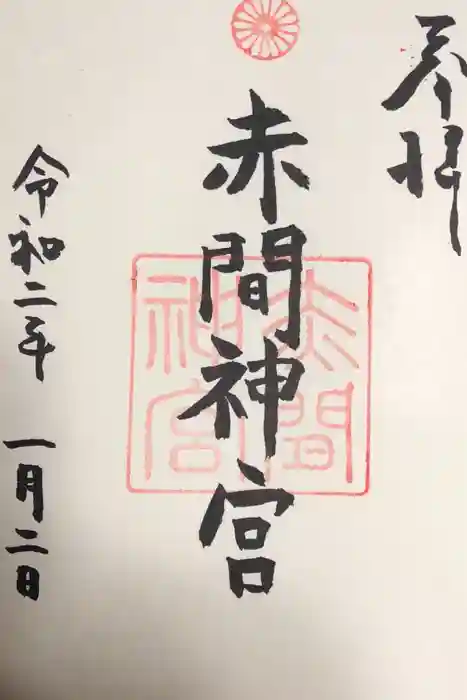 奉拝
赤間神宮
赤間神宮
令和二年 一月二日